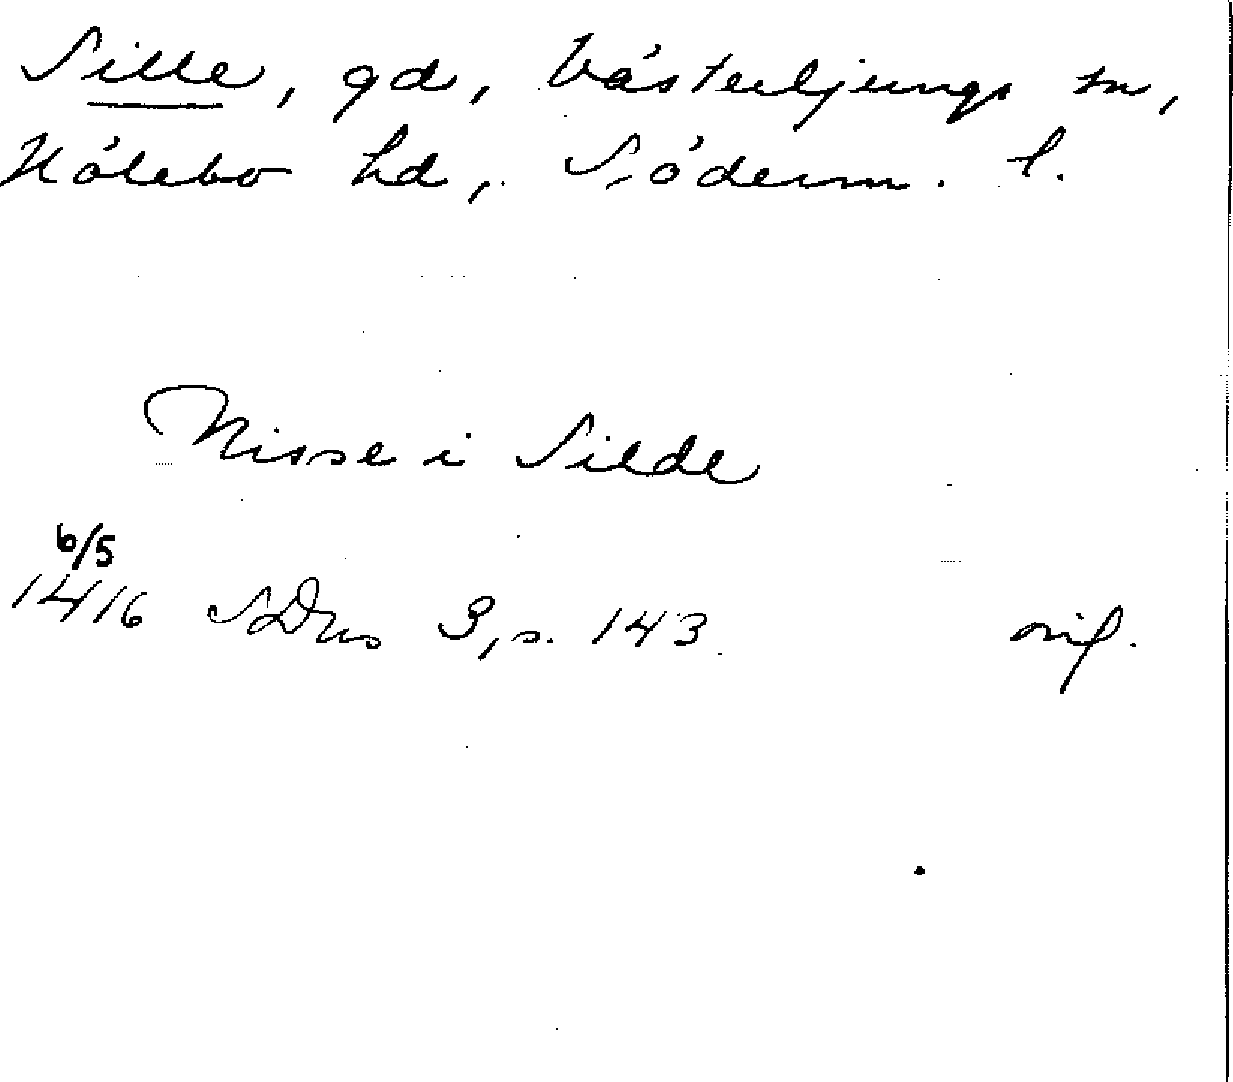 Sille, gd, Västerljungs sn,
Hölebo hd, Söderm. l.
Nisse i Silde
6/5
1416 SDns 3, s. 143. orif.